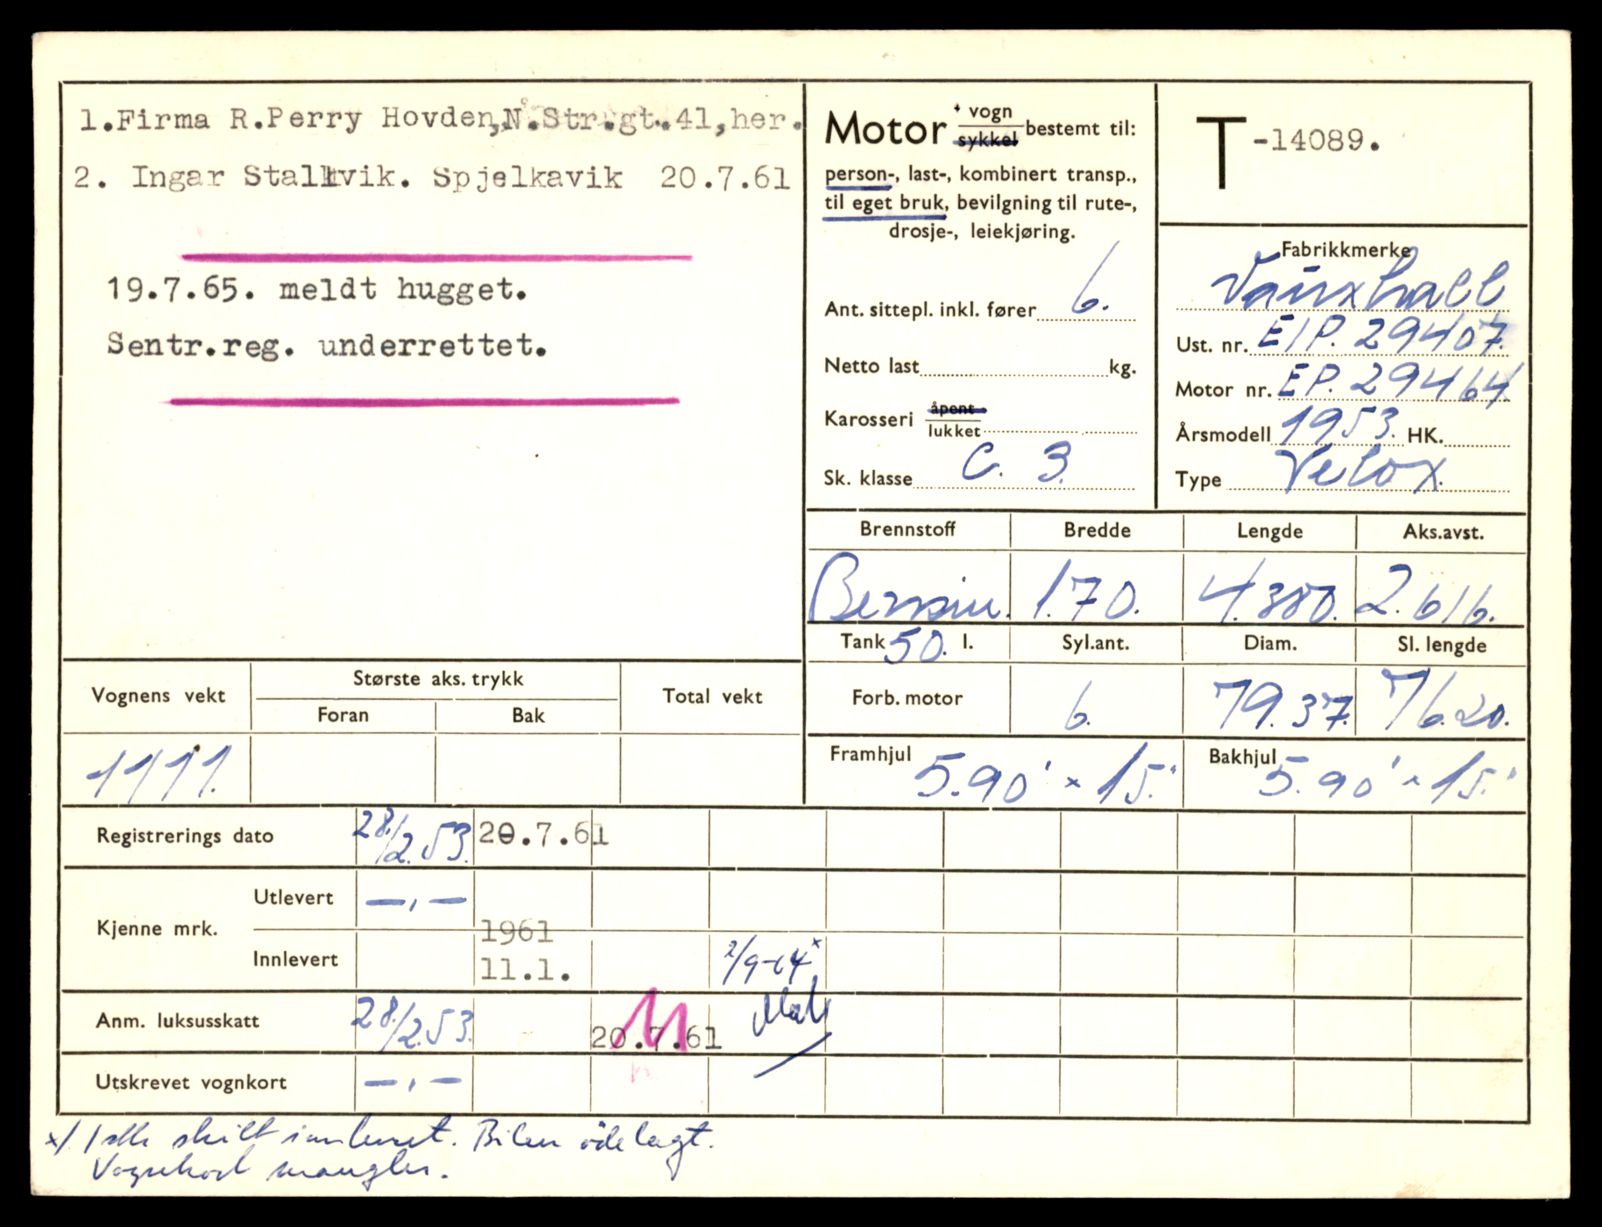 1.Firma R.Perry Hovden,N.Str.gt.41,her.
2. Ingar Stallvik. Spjelkavik 20.7.61
19.7.65. meldt hugget.
Sentr.reg. underrettet.
Motor vogn sykkel bestemt til:
person-, last-, kombinert transp.,
til eget bruk, bevilgning til rute-,
drosje-, leiekjøring.
Ant. sittepl. inkl. fører 6.
Netto last kg.
Karosseri åpent lukket
Sk. klasse C. 3.
T-14089.
Fabrikkmerke
Vauxhall
Ust. nr. EIP. 29407.
Motor nr. EP. 29464
Årsmodell 1953. HK.
Type Velox.
Brennstoff Bredde Lengde Aks.avst.
Bensin. 1.70. 4.380. 2.616.
Tank 50. l. Syl.ant. Diam. Sl. lengde
Forb. motor 6. 79.37. 76.20.
Framhjul 5.90' × 15.' Bakhjul 5.90' × 15.'
Vognens vekt Største aks. trykk Total vekt
Foran Bak
1111.
Registrerings dato 28/2.53. 20.7.61
Kjenne mrk. Utlevert —,—
Innlevert 1961 11.1. 2/9-64 x
Anm. luksusskatt 28/2.53. 20.7.61
Utskrevet vognkort —,—
x/. 1 stk skilt innlevert. Bilen ödelagt.
Vognkort mangler.